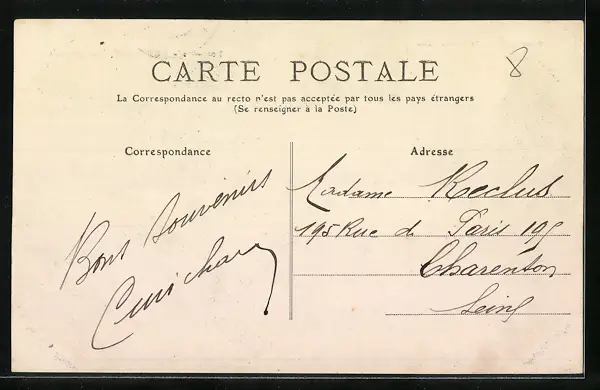 8
CARTE POSTALE
La Correspondance au recto n'est pas acceptée par tous les pays étrangers
(Se renseigner à la Poste)
Correspondance
Bons Souvenirs
Adresse
Madame Reclus
195 Rue de Paris 195
Charenton
Seine